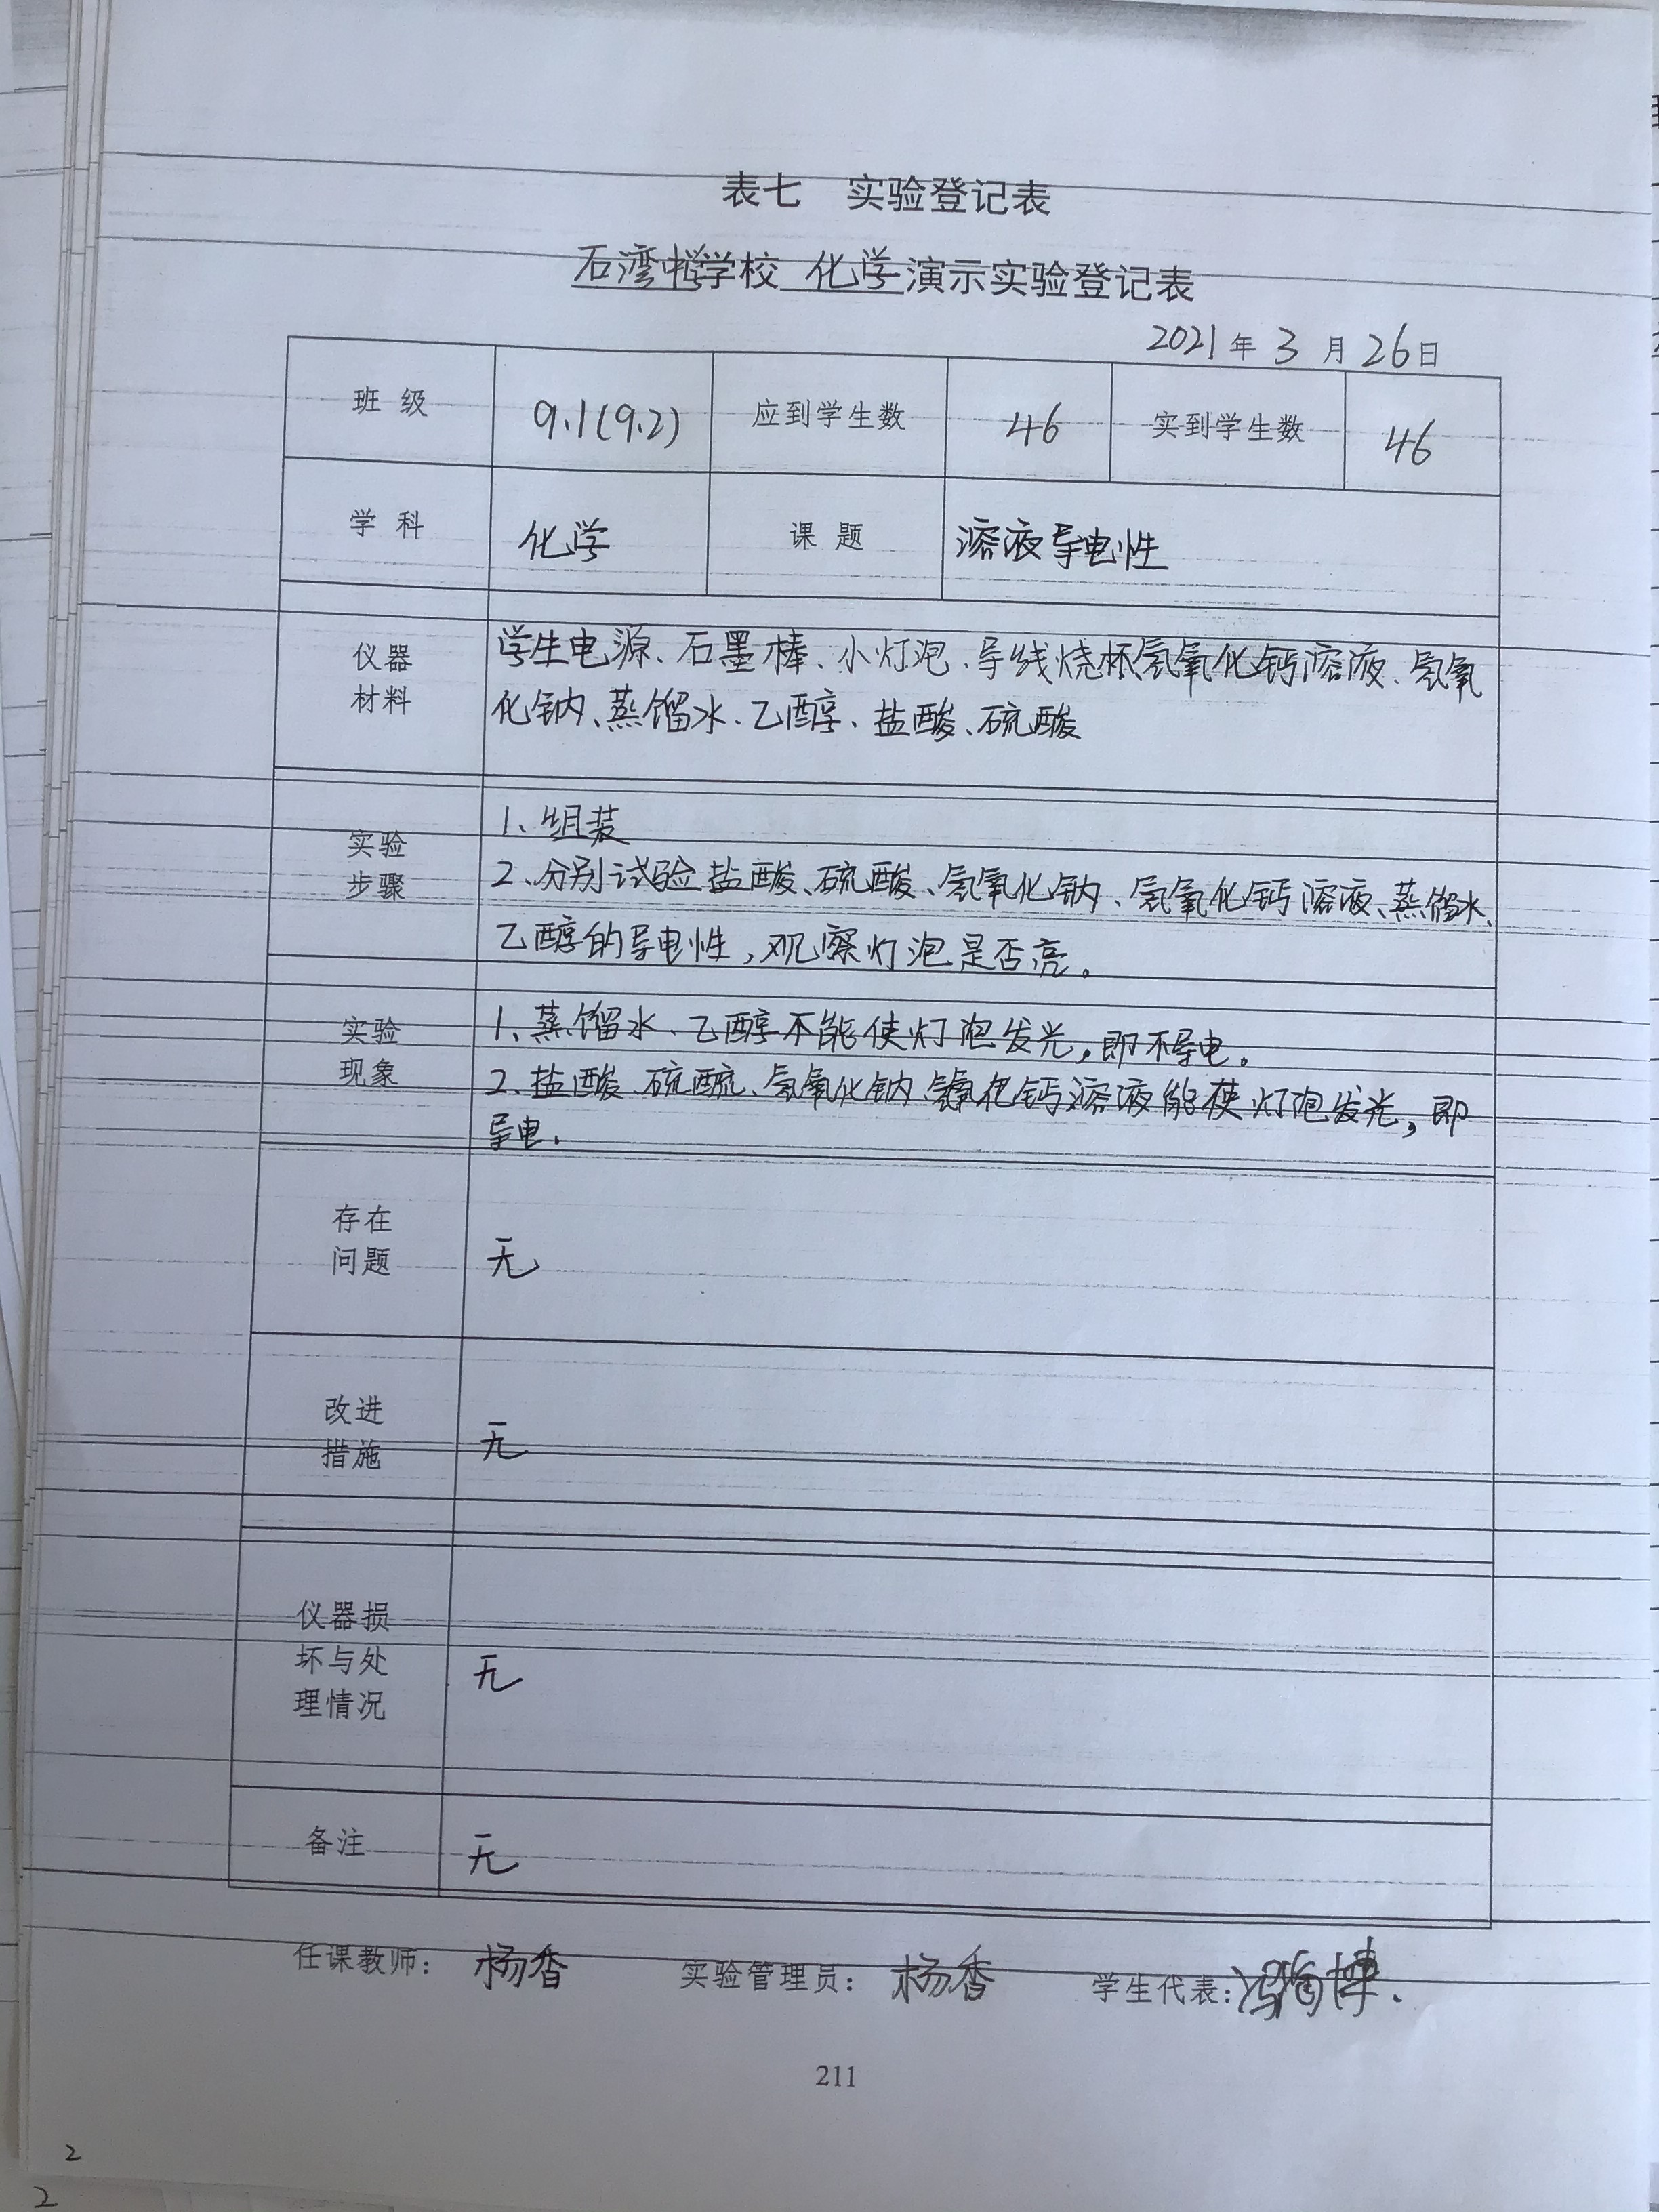 表七 实验登记表
石湾中学学校 化学 演示实验登记表
2021年3月26日
班级 9.1(9.2) 应到学生数 46 实到学生数 46
学科 化学 课题 溶液导电性
仪器材料
学生电源、石墨棒、小灯泡、导线烧杯氢氧化钙溶液、氢氧
化钠、蒸馏水、乙醇、盐酸、硫酸
实验步骤
1、组装
2、分别试验盐酸、硫酸、氢氧化钠、氢氧化钙溶液、蒸馏水、
乙醇的导电性,观察灯泡是否亮。
实验现象
1、蒸馏水、乙醇不能使灯泡发光,即不导电。
2、盐酸、硫酸、氢氧化钠、氢氧化钙溶液能使灯泡发光,即
导电.
存在问题
无
改进措施
无
仪器损坏与处理情况
无
备注 无
任课教师:杨香 实验管理员:杨香 学生代表:
211
2
2